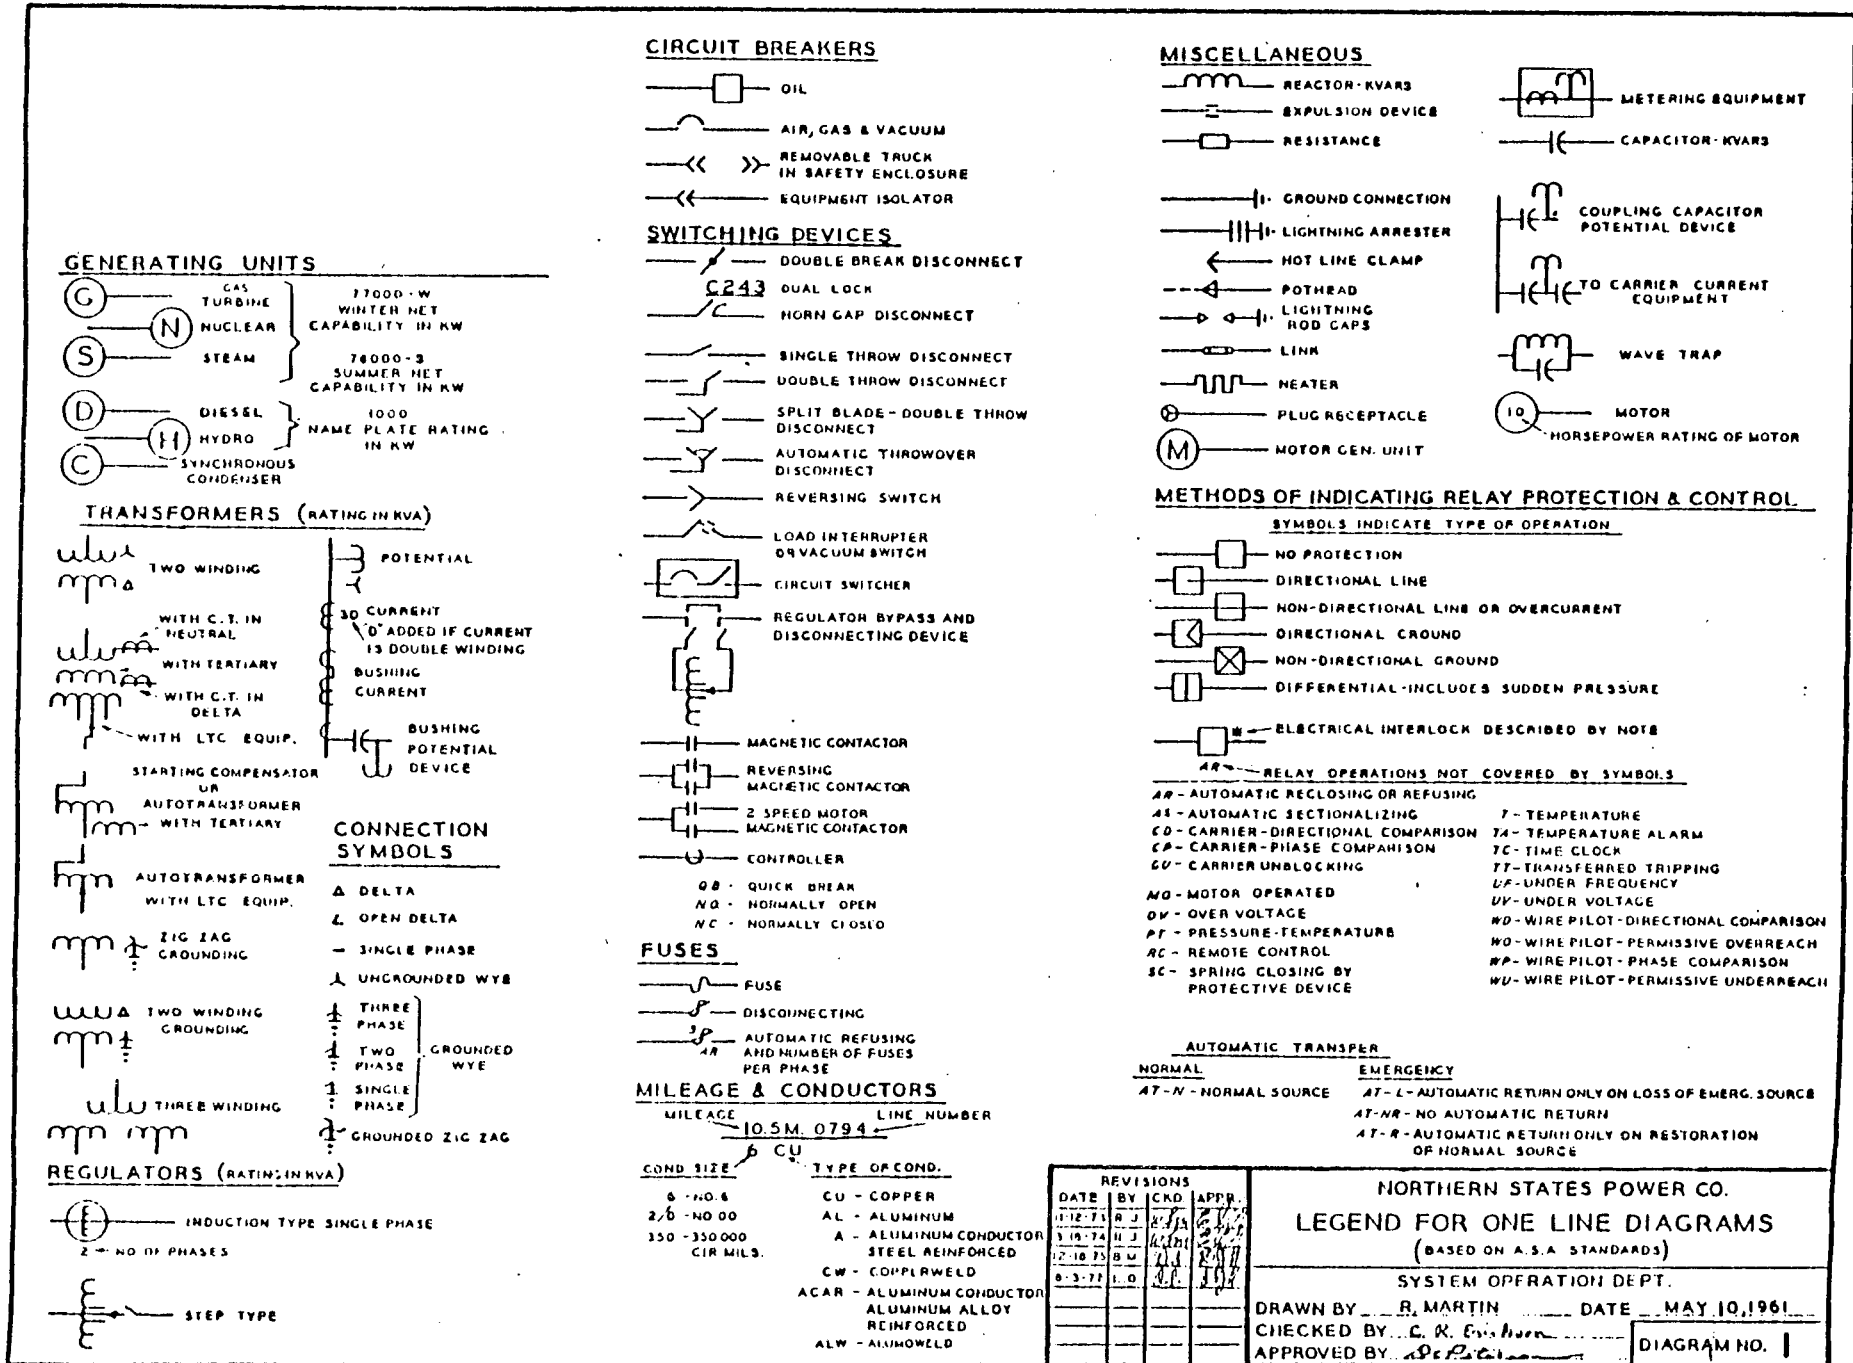 GENERATING UNITS
G
GAS
TURBINE
N
NUCLEAR
S
STEAM
77000-W
WINTER NET
CAPABILITY IN KW
76000-S
SUMMER NET
CAPABILITY IN KW
D
DIESEL
H
HYDRO
1000
NAME PLATE RATING
IN KW
C
SYNCHRONOUS
CONDENSER
TRANSFORMERS (RATING IN KVA)
TWO WINDING
WITH C.T. IN
NEUTRAL
WITH TERTIARY
WITH C.T. IN
DELTA
WITH LTC EQUIP.
POTENTIAL
3D CURRENT
"D" ADDED IF CURRENT
IS DOUBLE WINDING
BUSHING
CURRENT
BUSHING
POTENTIAL
DEVICE
STARTING COMPENSATOR
OR
AUTOTRANSFORMER
WITH TERTIARY
AUTOTRANSFORMER
WITH LTC EQUIP.
ZIG ZAG
GROUNDING
TWO WINDING
GROUNDING
THREE WINDING
CONNECTION
SYMBOLS
Δ DELTA
OPEN DELTA
- SINGLE PHASE
UNGROUNDED WYE
THREE
PHASE
TWO
PHASE
SINGLE
PHASE
GROUNDED
WYE
GROUNDED ZIG ZAG
REGULATORS (RATING IN KVA)
INDUCTION TYPE SINGLE PHASE
2 NO OF PHASES
STEP TYPE
CIRCUIT BREAKERS
OIL
AIR, GAS & VACUUM
REMOVABLE TRUCK
IN SAFETY ENCLOSURE
EQUIPMENT ISOLATOR
SWITCHING DEVICES
DOUBLE BREAK DISCONNECT
C243 DUAL LOCK
HORN GAP DISCONNECT
SINGLE THROW DISCONNECT
DOUBLE THROW DISCONNECT
SPLIT BLADE - DOUBLE THROW
DISCONNECT
AUTOMATIC THROWOVER
DISCONNECT
REVERSING SWITCH
LOAD INTERRUPTER
OR VACUUM SWITCH
CIRCUIT SWITCHER
REGULATOR BYPASS AND
DISCONNECTING DEVICE
MAGNETIC CONTACTOR
REVERSING
MAGNETIC CONTACTOR
2 SPEED MOTOR
MAGNETIC CONTACTOR
CONTROLLER
QB - QUICK BREAK
NO - NORMALLY OPEN
NC - NORMALLY CLOSED
FUSES
FUSE
DISCONNECTING
3
AR
AUTOMATIC REFUSING
AND NUMBER OF FUSES
PER PHASE
MILEAGE & CONDUCTORS
MILEAGE LINE NUMBER
10.5M. 0794
6 CU
COND SIZE
6 - NO. 6
2/0 - NO 00
350 - 350 000
CIR MILS.
TYPE OF COND.
CU - COPPER
AL - ALUMINUM
A - ALUMINUM CONDUCTOR
STEEL REINFORCED
CW - COPPERWELD
ACAR - ALUMINUM CONDUCTOR
ALUMINUM ALLOY
REINFORCED
ALW - ALUMOWELD
MISCELLANEOUS
REACTOR - KVARS
EXPULSION DEVICE
RESISTANCE
GROUND CONNECTION
LIGHTNING ARRESTER
HOT LINE CLAMP
POTHEAD
LIGHTNING
ROD GAPS
LINK
HEATER
PLUG RECEPTACLE
M
MOTOR GEN. UNIT
METERING EQUIPMENT
CAPACITOR - KVARS
COUPLING CAPACITOR
POTENTIAL DEVICE
TO CARRIER CURRENT
EQUIPMENT
WAVE TRAP
10
MOTOR
HORSEPOWER RATING OF MOTOR
METHODS OF INDICATING RELAY PROTECTION & CONTROL
SYMBOLS INDICATE TYPE OF OPERATION
NO PROTECTION
DIRECTIONAL LINE
NON-DIRECTIONAL LINE OR OVERCURRENT
DIRECTIONAL GROUND
NON-DIRECTIONAL GROUND
DIFFERENTIAL-INCLUDES SUDDEN PRESSURE
* ELECTRICAL INTERLOCK DESCRIBED BY NOTE
AR RELAY OPERATIONS NOT COVERED BY SYMBOLS
AR - AUTOMATIC RECLOSING OR REFUSING
AS - AUTOMATIC SECTIONALIZING
CD - CARRIER-DIRECTIONAL COMPARISON
CP - CARRIER-PHASE COMPARISON
CU - CARRIER UNBLOCKING
MO - MOTOR OPERATED
OV - OVER VOLTAGE
PT - PRESSURE-TEMPERATURE
RC - REMOTE CONTROL
SC - SPRING CLOSING BY
PROTECTIVE DEVICE
T - TEMPERATURE
TA - TEMPERATURE ALARM
TC - TIME CLOCK
TT - TRANSFERRED TRIPPING
UF - UNDER FREQUENCY
UV - UNDER VOLTAGE
WD - WIRE PILOT-DIRECTIONAL COMPARISON
WO - WIRE PILOT-PERMISSIVE OVERREACH
WP - WIRE PILOT-PHASE COMPARISON
WU - WIRE PILOT-PERMISSIVE UNDERREACH
AUTOMATIC TRANSFER
NORMAL
AT-N - NORMAL SOURCE
EMERGENCY
AT-L - AUTOMATIC RETURN ONLY ON LOSS OF EMERG. SOURCE
AT-NR - NO AUTOMATIC RETURN
AT-R - AUTOMATIC RETURN ONLY ON RESTORATION
OF NORMAL SOURCE
REVISIONS
DATE BY CKD. APPR.
11-12-73 R J
3-18-74 R J
12-18-75 B M
8-3-77 L O
NORTHERN STATES POWER CO.
LEGEND FOR ONE LINE DIAGRAMS
(BASED ON A.S.A STANDARDS)
SYSTEM OPERATION DEPT.
DRAWN BY R. MARTIN DATE MAY 10, 1961
CHECKED BY C. R.
APPROVED BY
DIAGRAM NO. 1